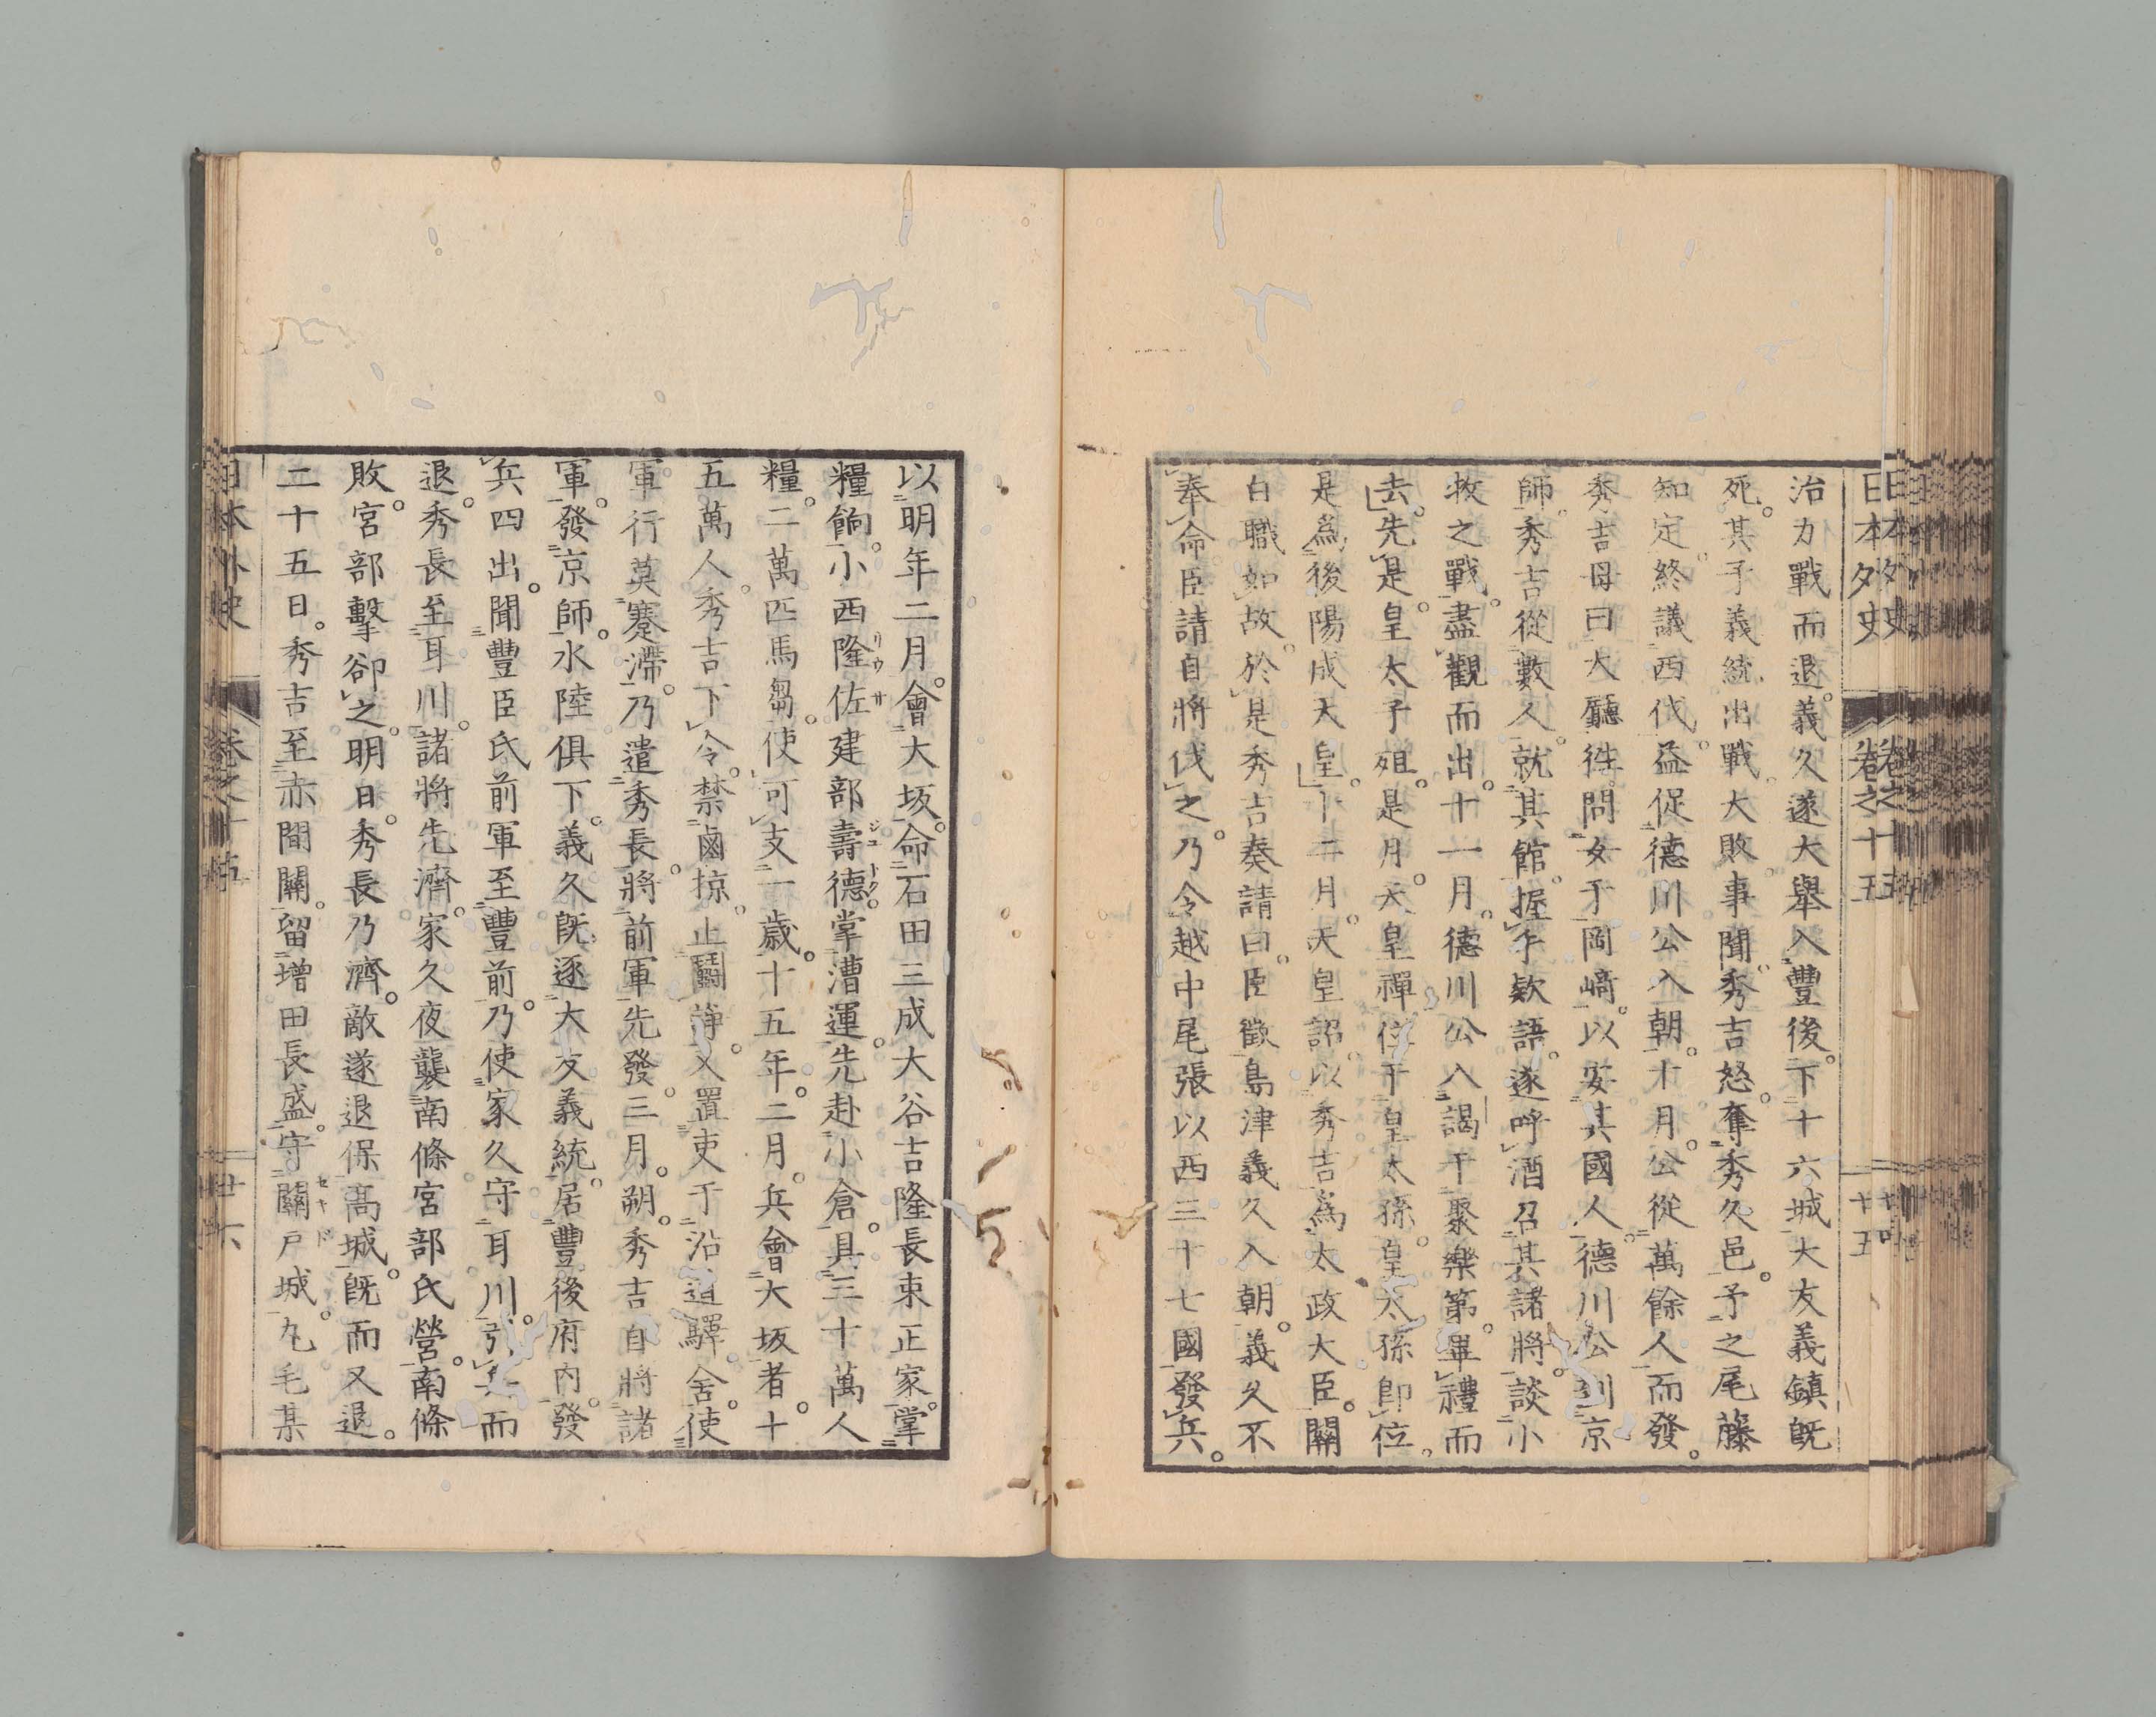 日本外史 卷之十五
治力戰而退。義久遂大舉入豐後。下十六城大友義鎮既
死。其子義統出戰。大敗。事聞秀吉怒。奪秀久邑。予之尾藤
知定。終議西伐。益促德川公入朝。十月。公從萬餘人而發。
秀吉母曰大廳。徃問女于岡﨑。以安其國人。德川公到京
師。秀吉從數人。就其館。握手欵語。遂呼酒召其諸將。談小
牧之戰。盡觀而出。十一月。德川公入謁于聚樂第。畢禮而
去。先是。皇太子殂。是月。天皇禪位于皇太孫。皇太孫即位。
是爲後陽成天皇。十二月。天皇詔以秀吉爲太政大臣。關
白職如故。於是秀吉奏請曰。臣徵島津義久入朝。義久不
奉命。臣請自將伐之。乃令越中尾張以西三十七國發兵。
以明年二月。會大坂。命石田三成大谷吉隆長束正家。掌
糧餉。小西隆佐建部壽德。掌漕運。先赴小倉。具三十萬人
糧。二萬匹馬芻。使可支一歲。十五年。二月。兵會大坂者。十
五萬人。秀吉下令。禁鹵掠。止鬪諍。又置吏于沿道驛舍。使
軍行莫蹇滯。乃遣秀長。將前軍先發。三月。朔。秀吉自將諸
軍。發京師。水陸俱下。義久既逐大友義統。居豐後府內。發
兵四出。聞豐臣氏前軍至豐前。乃使家久守耳川。引兵而
退。秀長至耳川。諸將先濟。家久夜襲南條宮部氏營。南條
敗。宮部擊卻之。明日。秀長乃濟。敵遂退保高城。既而又退。
二十五日。秀吉至赤間關。留增田長盛。守關戸城。九毛某
日本外史 卷之十五 廿六